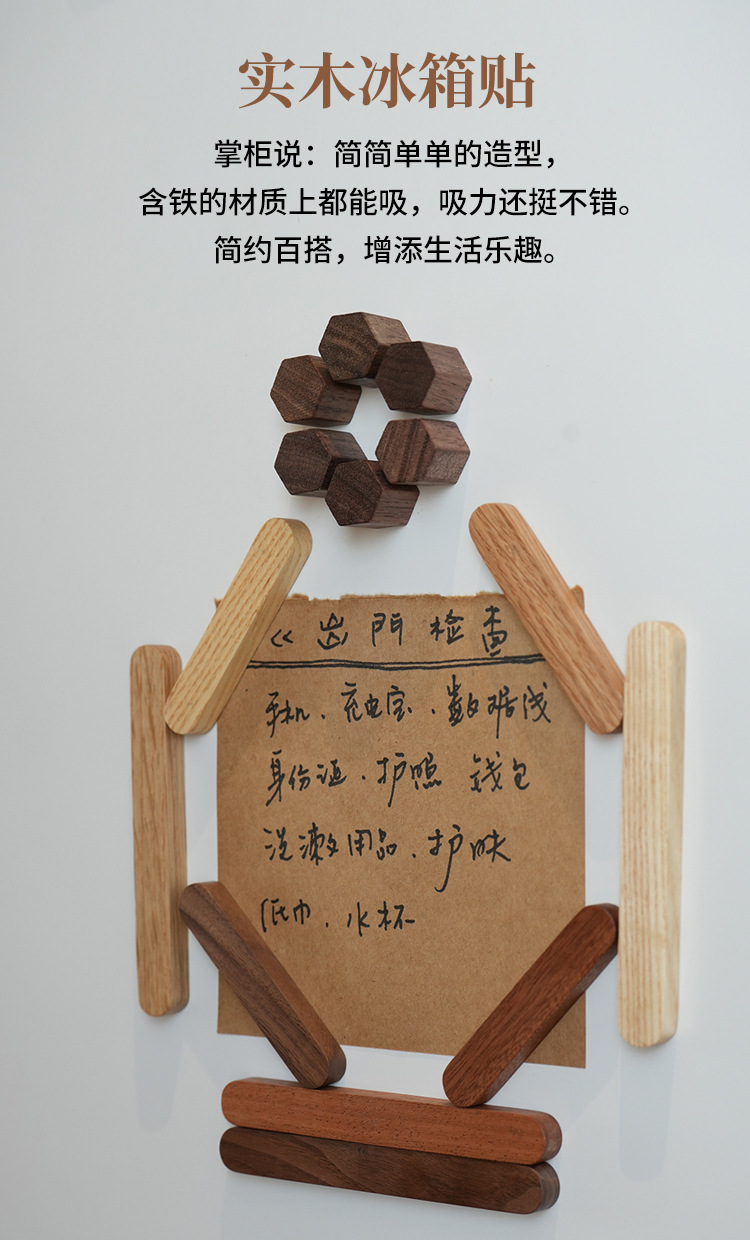 实木冰箱贴
掌柜说：简简单单的造型，
含铁的材质上都能吸，吸力还挺不错。
简约百搭，增添生活乐趣。
<< 出門检查
手机、充电宝、数据线
身份证、护照 钱包
洗漱用品、护肤
纸巾、水杯